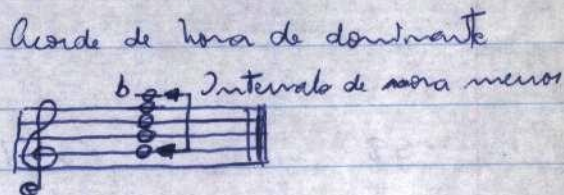 Acorde de nona de dominante
b Intervalo de nona menor